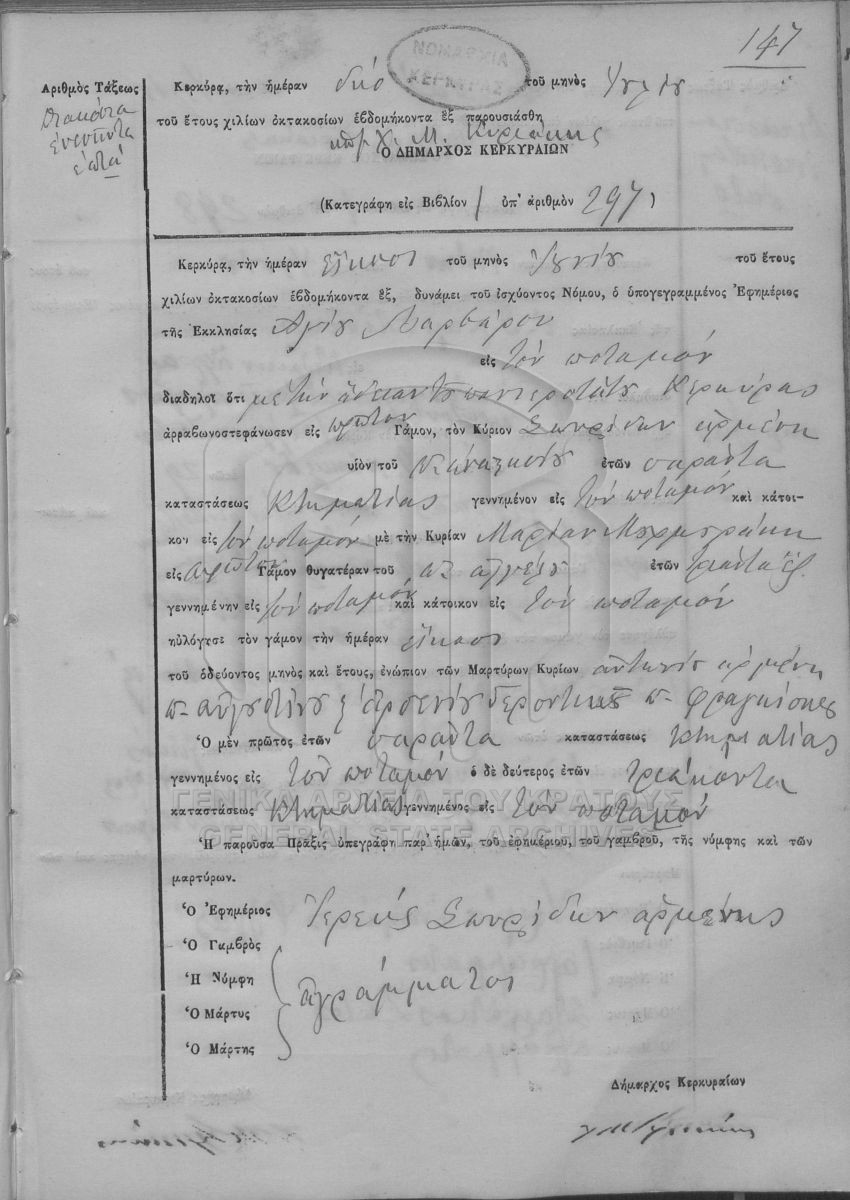 147
ΝΟΜΑΡΧΙΑ
ΚΕΡΚΥΡΑΣ
Ἀριθμὸς Τάξεως
διακόσια
ἐνενῆντα
ἑπτά
Κερκύρᾳ, τὴν ἡμέραν δύο τοῦ μηνὸς Ἰουλίου
τοῦ ἔτους χιλίων ὀκτακοσίων ἑβδομήκοντα ἓξ παρουσιάσθη
Ὁ ΔΗΜΑΡΧΟΣ ΚΕΡΚΥΡΑΙΩΝ
(Κατεγράφη εἰς Βιβλίον 1 ὑπ' ἀριθμὸν 297)
Κερκύρᾳ, τὴν ἡμέραν εἴκοσι τοῦ μηνὸς Ἰουνίου τοῦ ἔτους
χιλίων ὀκτακοσίων ἑβδομήκοντα ἓξ, δυνάμει τοῦ ἰσχύοντος Νόμου, ὁ ὑπογεγραμμένος Ἐφημέριος
τῆς Ἐκκλησίας Ἁγίου Βαρβάρου
εἰς τὸν ποταμόν
διαδηλοῖ ὅτι με τὴν ἄδειαν τοῦ πανιεροτάτου Κερκύρας
ἀρραβωνοστεφάνωσεν εἰς πρῶτον Γάμον, τὸν Κύριον Σπυρίδων ἀρμένη
υἱὸν τοῦ ἐτῶν σαράντα
καταστάσεως Κτηματίας γεννημένον εἰς τὸν ποταμόν καὶ κάτοι-
κον εἰς τὸν ποταμόν μὲ τὴν Κυρίαν Μαρίαν
εἰς πρῶτον Γάμον θυγατέραν τοῦ ἐτῶν τριάντα ἕξ
γεννημένην εἰς τὸν ποταμόν καὶ κάτοικον εἰς τὸν ποταμόν
ηὐλόγησε τὸν γάμον τὴν ἡμέραν εἴκοσι
τοῦ ὁδεύοντος μηνὸς καὶ ἔτους, ἐνώπιον τῶν Μαρτύρων Κυρίων ἀντωνίου ἀρμένη
π- αὐγουστίνου π- φραγκίσκου
Ὁ μὲν πρῶτος ἐτῶν σαράντα καταστάσεως κτηματίας
γεννημένος εἰς τὸν ποταμόν ὁ δὲ δεύτερος ἐτῶν τριάκοντα
καταστάσεως κτηματίας γεννημένος εἰς τὸν ποταμόν
ΓΕΝΙΚΑ ΑΡΧΕΙΑ ΤΟΥ ΚΡΑΤΟΥΣ
GENERAL STATE ARCHIVES
Ἡ παροῦσα Πρᾶξις ὑπεγράφη παρ' ἡμῶν, τοῦ ἐφημερίου, τοῦ γαμβροῦ, τῆς νύμφης καὶ τῶν
μαρτύρων.
Ὁ Ἐφημέριος Ἱερεύς Σπυρίδων ἀρμένης
Ὁ Γαμβρὸς
Ἡ Νύμφη ἀγράμματοι
Ὁ Μάρτυς
Ὁ Μάρτης
Δήμαρχος Κερκυραίων